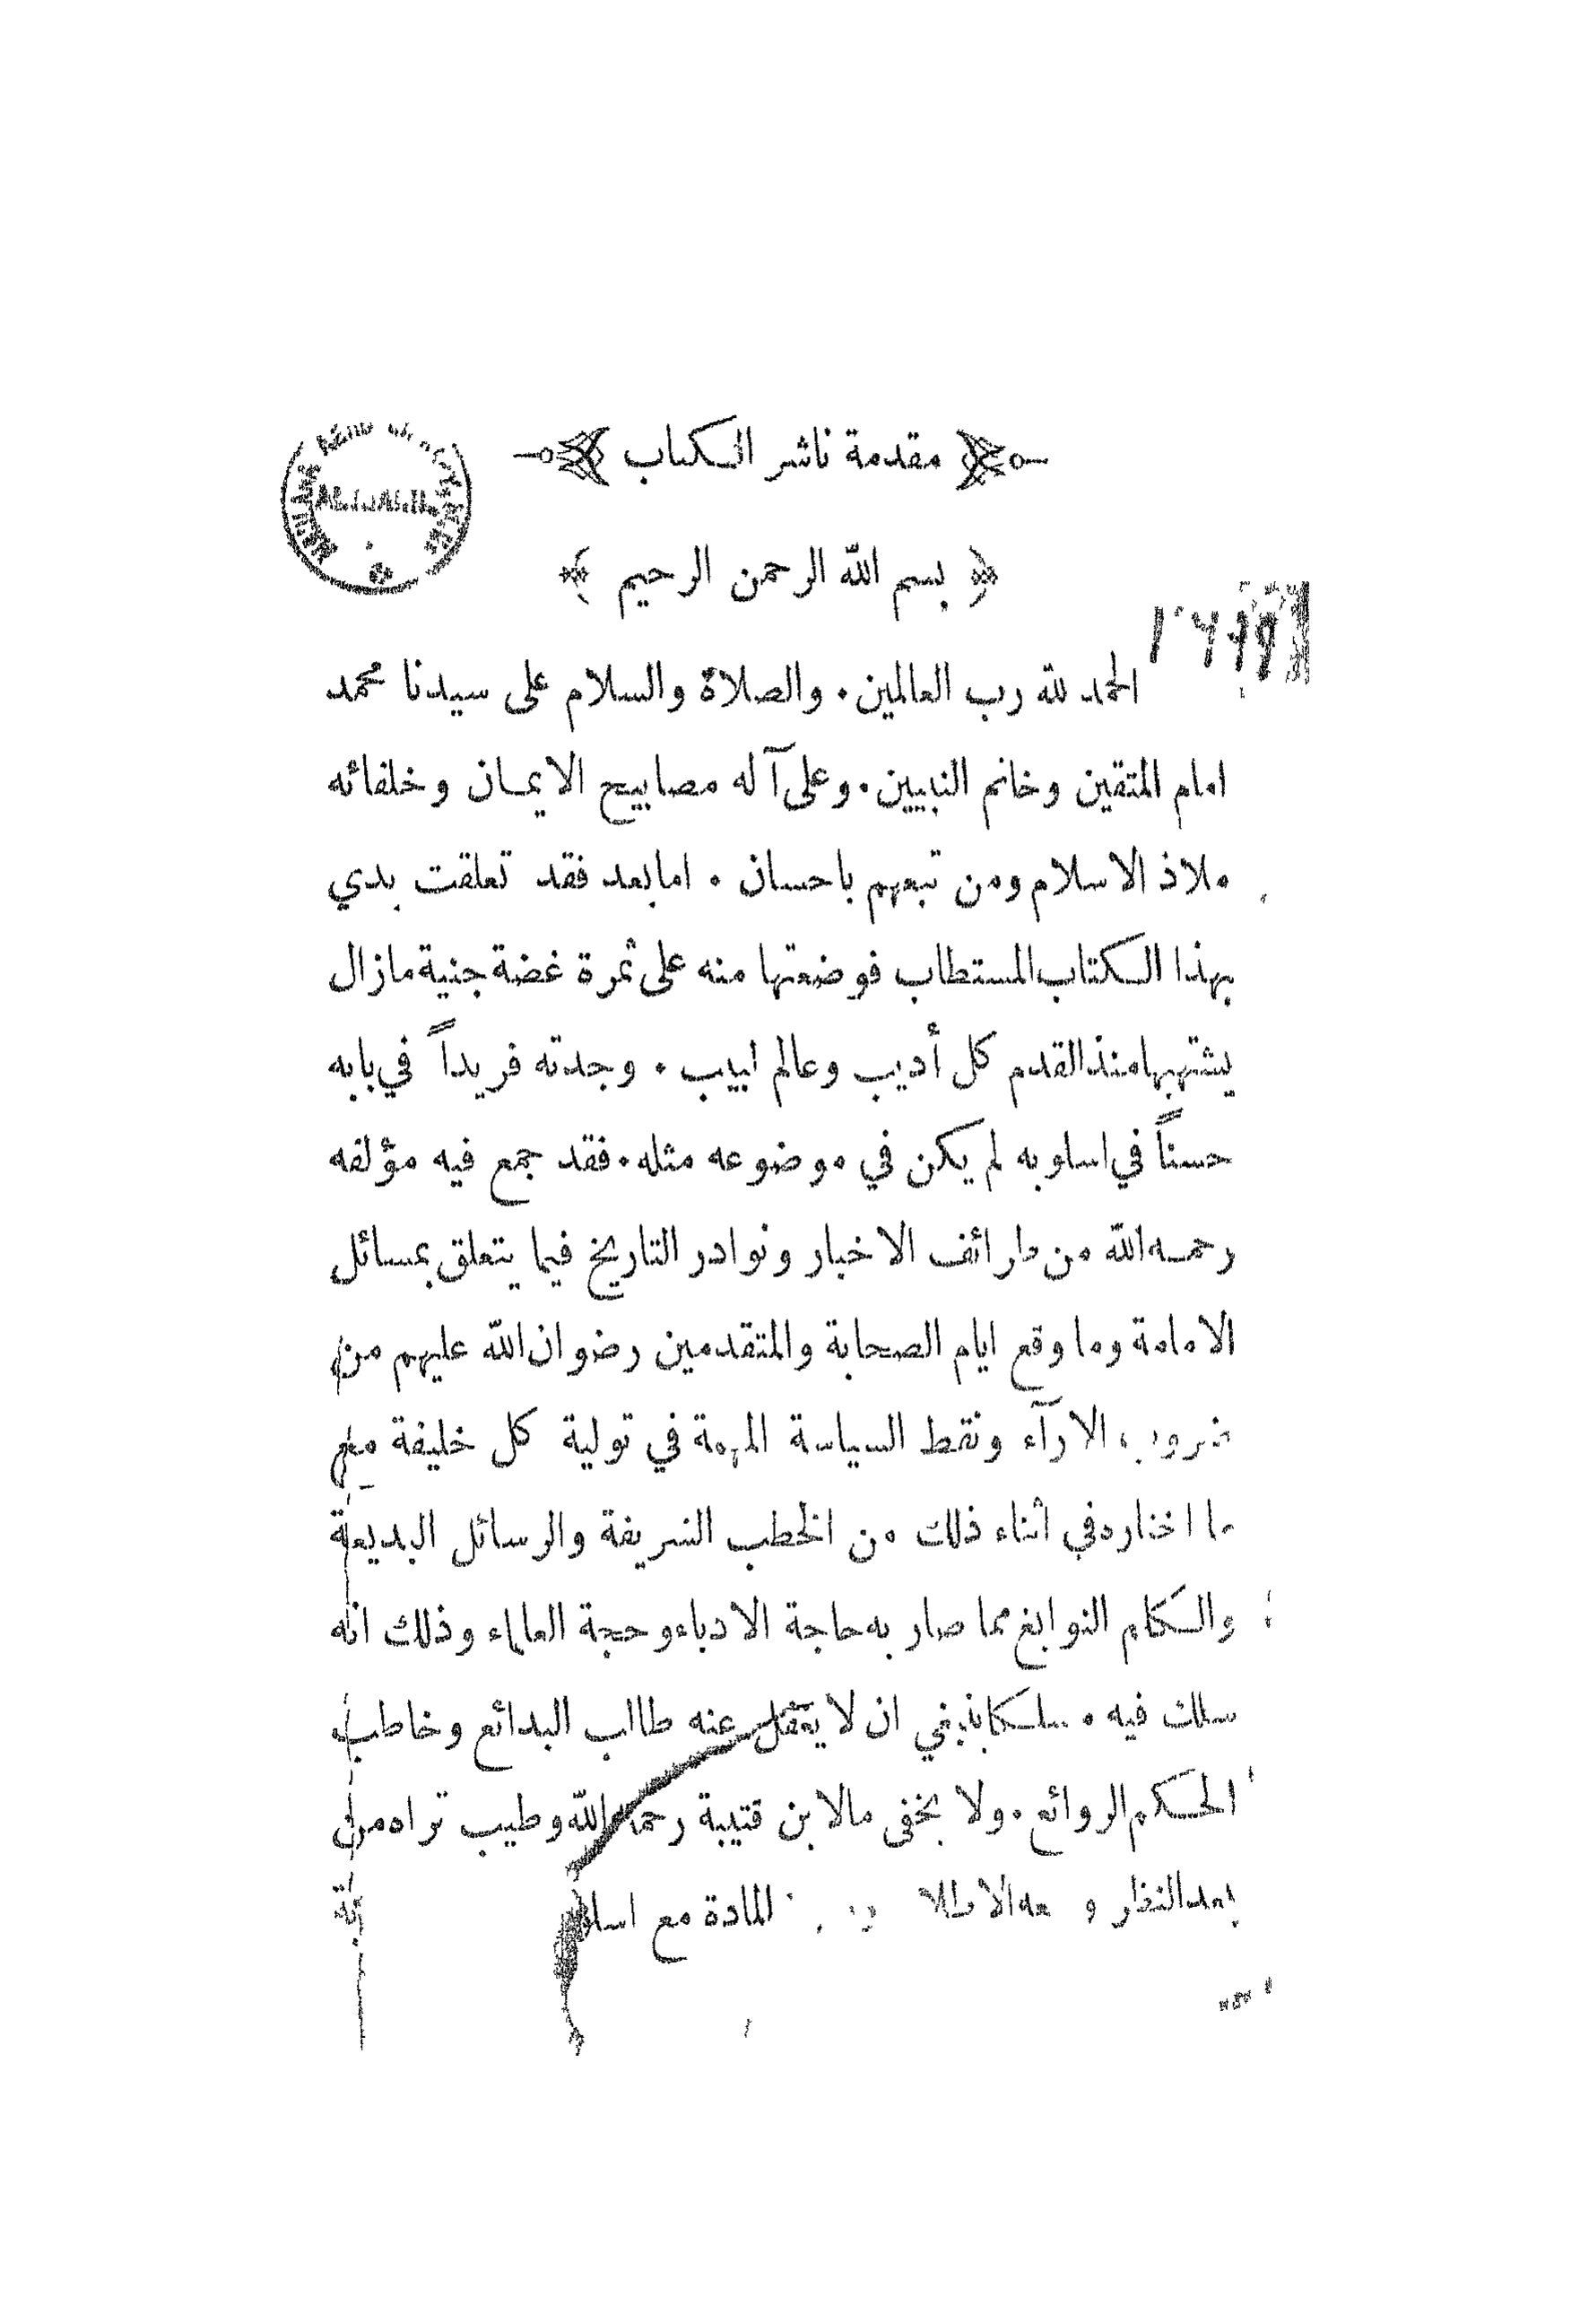 مقدمة ناشر الكتاب
بسم الله الرحمن الرحيم
الحمد لله رب العالمين. والصلاة والسلام على سيدنا محمد
امام المتقين وخاتم النبيين. وعلى آله مصابيح الايمان وخلفائه
ملاذ الاسلام ومن تبعهم باحسان. اما بعد فقد تعلقت يدي
بهذا الكتاب المستطاب فوضعتها منه على ثمرة غضة جنية مازال
يشتهيها منذ القدم كل أديب وعالم لبيب. وجدته فريداً في بابه
حسناً في اسلوبه لم يكن في موضوعه مثله. فقد جمع فيه مؤلفه
رحمه الله من طرائف الاخبار ونوادر التاريخ فيما يتعلق بمسائل
الامامة وما وقع ايام الصحابة والمتقدمين رضوان الله عليهم من
ضروب الارآء ونقط السياسة المهمة في تولية كل خليفة مع
ما اختاره في أثناء ذلك من الخطب الشريفة والرسائل البديعة
والكلم النوابغ مما صار به حاجة الادباء وحجة العلماء وذلك انه
سلك فيه مسلكا ينبغي ان لا يغفل عنه طالب البدائع وخاطب
الحكم الروائع. ولا يخفى مالابن قتيبة رحمه الله وطيب ثراه من
بعد النظر و المادة مع